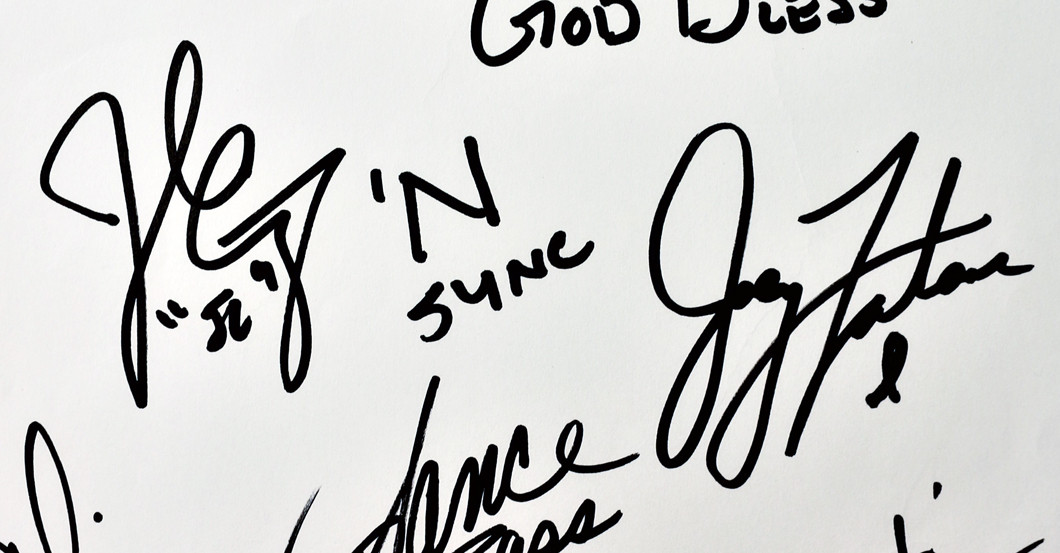 GOD BLESS
JC
"JC"
'N
SYNC
Joey Fatone
Lance
Bass